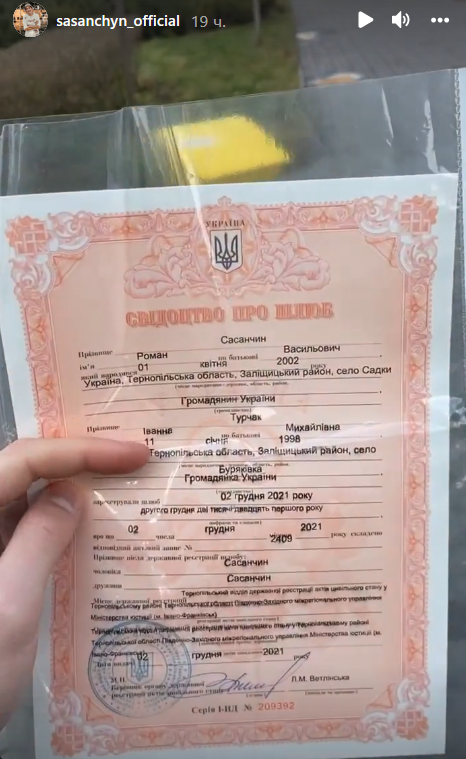 sasanchyn_official 19 ч.
УКРАЇНА
СВІДОЦТВО ПРО ШЛЮБ
Сасанчин
Прізвище Роман по батькові Васильович
ім'я 01 квітня 2002
який народився року
Україна, Тернопільська область, Заліщицький район, село Садки
Громадянин України
Турчак
Прізвище Іванна Михайлівна
ім'я 11 січня по батькові 1998
Тернопільська область, Заліщицький район, село
Буряківка
Громадянка України
зареєстрували шлюб 02 грудня 2021 року
другого грудня дві тисячі двадцять першого року
про що 02 числа грудня 2021 року складено
відповідний актовий запис № 2409
Прізвище після державної реєстрації шлюбу:
чоловіка Сасанчин
дружини Сасанчин
Місце державної реєстрації Тернопільський відділ державної реєстрації актів цивільного стану у
Тернопільському районі Тернопільської області Південно-Західного міжрегіонального управління
Міністерства юстиції (м. Івано-Франківськ)
області Південно-Західного міжрегіонального управління Міністерства юстиції (м.
Івано-Франківськ)
Дата видачі 02 грудня 2021
М.П.
Керівник органу державної Л.М. Ветлінська
реєстрації актів цивільного стану
Серія І-ИД № 209392